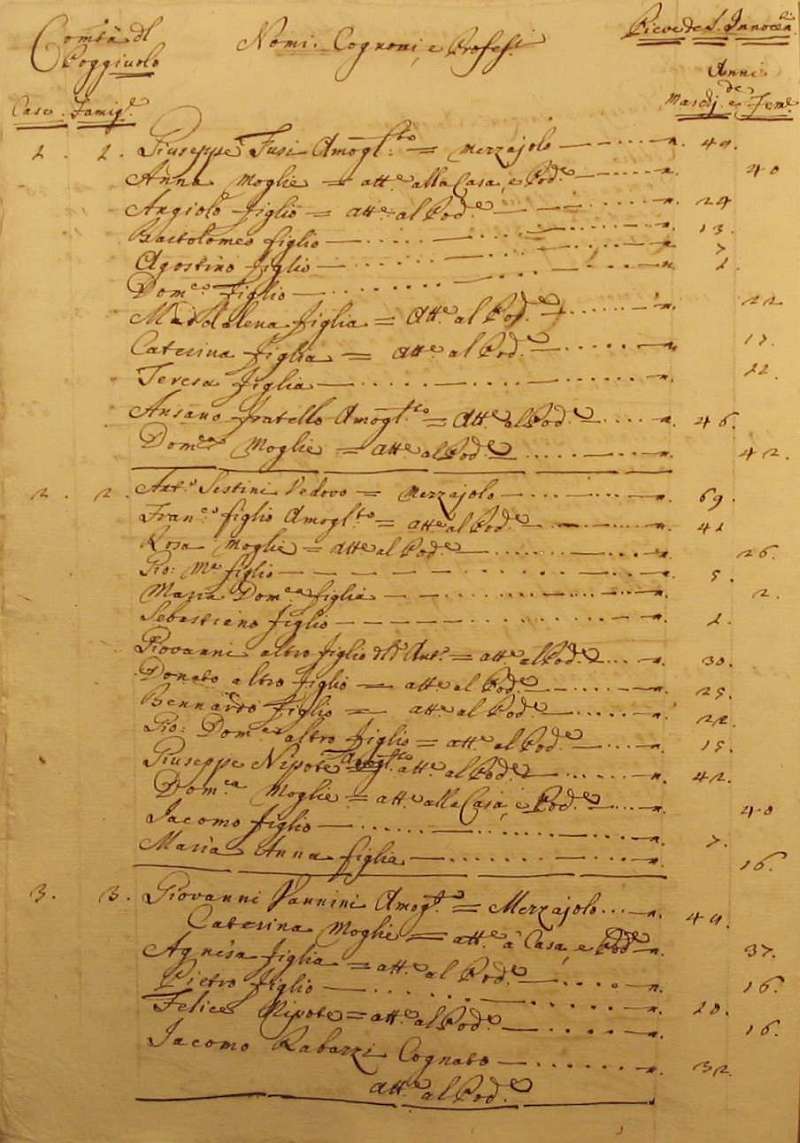 Comtà di Poggiuolo
Nomi, Cognomi, e Profes.i
Pieve de S. Innocen.
Case. Famig.e
Anni de Maschj e Fem.e
1. 1. Giuseppe Fusi Amogl.to = Mezzajolo n. 49.
Anna Moglie = att.e alla Casa, e Pod.e 40
Angiolo figlio = att.e al Pod.e n. 24
Bartolomeo figlio n. 13.
Agostino figlio n. 7
Dom.co figlio n. 1.
Maddalena figlia = Att.e al Pod.e n. 22
Caterina figlia = Att.e al Pod.e n. 17.
Teresa figlia n. 12.
Ansano fratello Amogl.to = Att.e al Pod.e n. 46.
Dom.ca Moglie = att.e al Pod.e n. 42.
2. 2. Ant.o Sestini Vedovo = Mezzajolo n. 69.
Fran.co figlio Amogl.to = att.e al Pod.e n. 41
Rosa Moglie = att.e al Pod.e n. 26.
Gio: M.a figlio n. 5.
Maria Dom.ca figlia n. 2.
Sebastiano figlio n. 1.
Giovanni altro figlio d.o Ant.o = att.e al Pod.e n. 30.
Donato altro figlio = att.e al Pod.e n. 25.
Bennardo figlio = att.e al Pod.e n. 22
Gio: Dom.co altro figlio = att.e al Pod.e n. 15.
Giuseppe Nipote Amogl.to att.e al Pod.e n. 42.
Dom.ca Moglie = att.e alla Casa, e Pod.e n. 40
Jacomo figlio n. 7.
Maria Anna figlia n. 16.
3. 3. Giovanni Vannini Amogl.to = Mezzajolo n. 49.
Caterina Moglie = att.e a Casa, e Pod.e n. 37.
Agnesa figlia = att.e al Pod.e n. 16.
Pietro figlio n. 10.
Felice Nipote = att.e al Pod.e n. 16.
Jacomo Rabazzi Cognato n. 32.
att.e al Pod.e